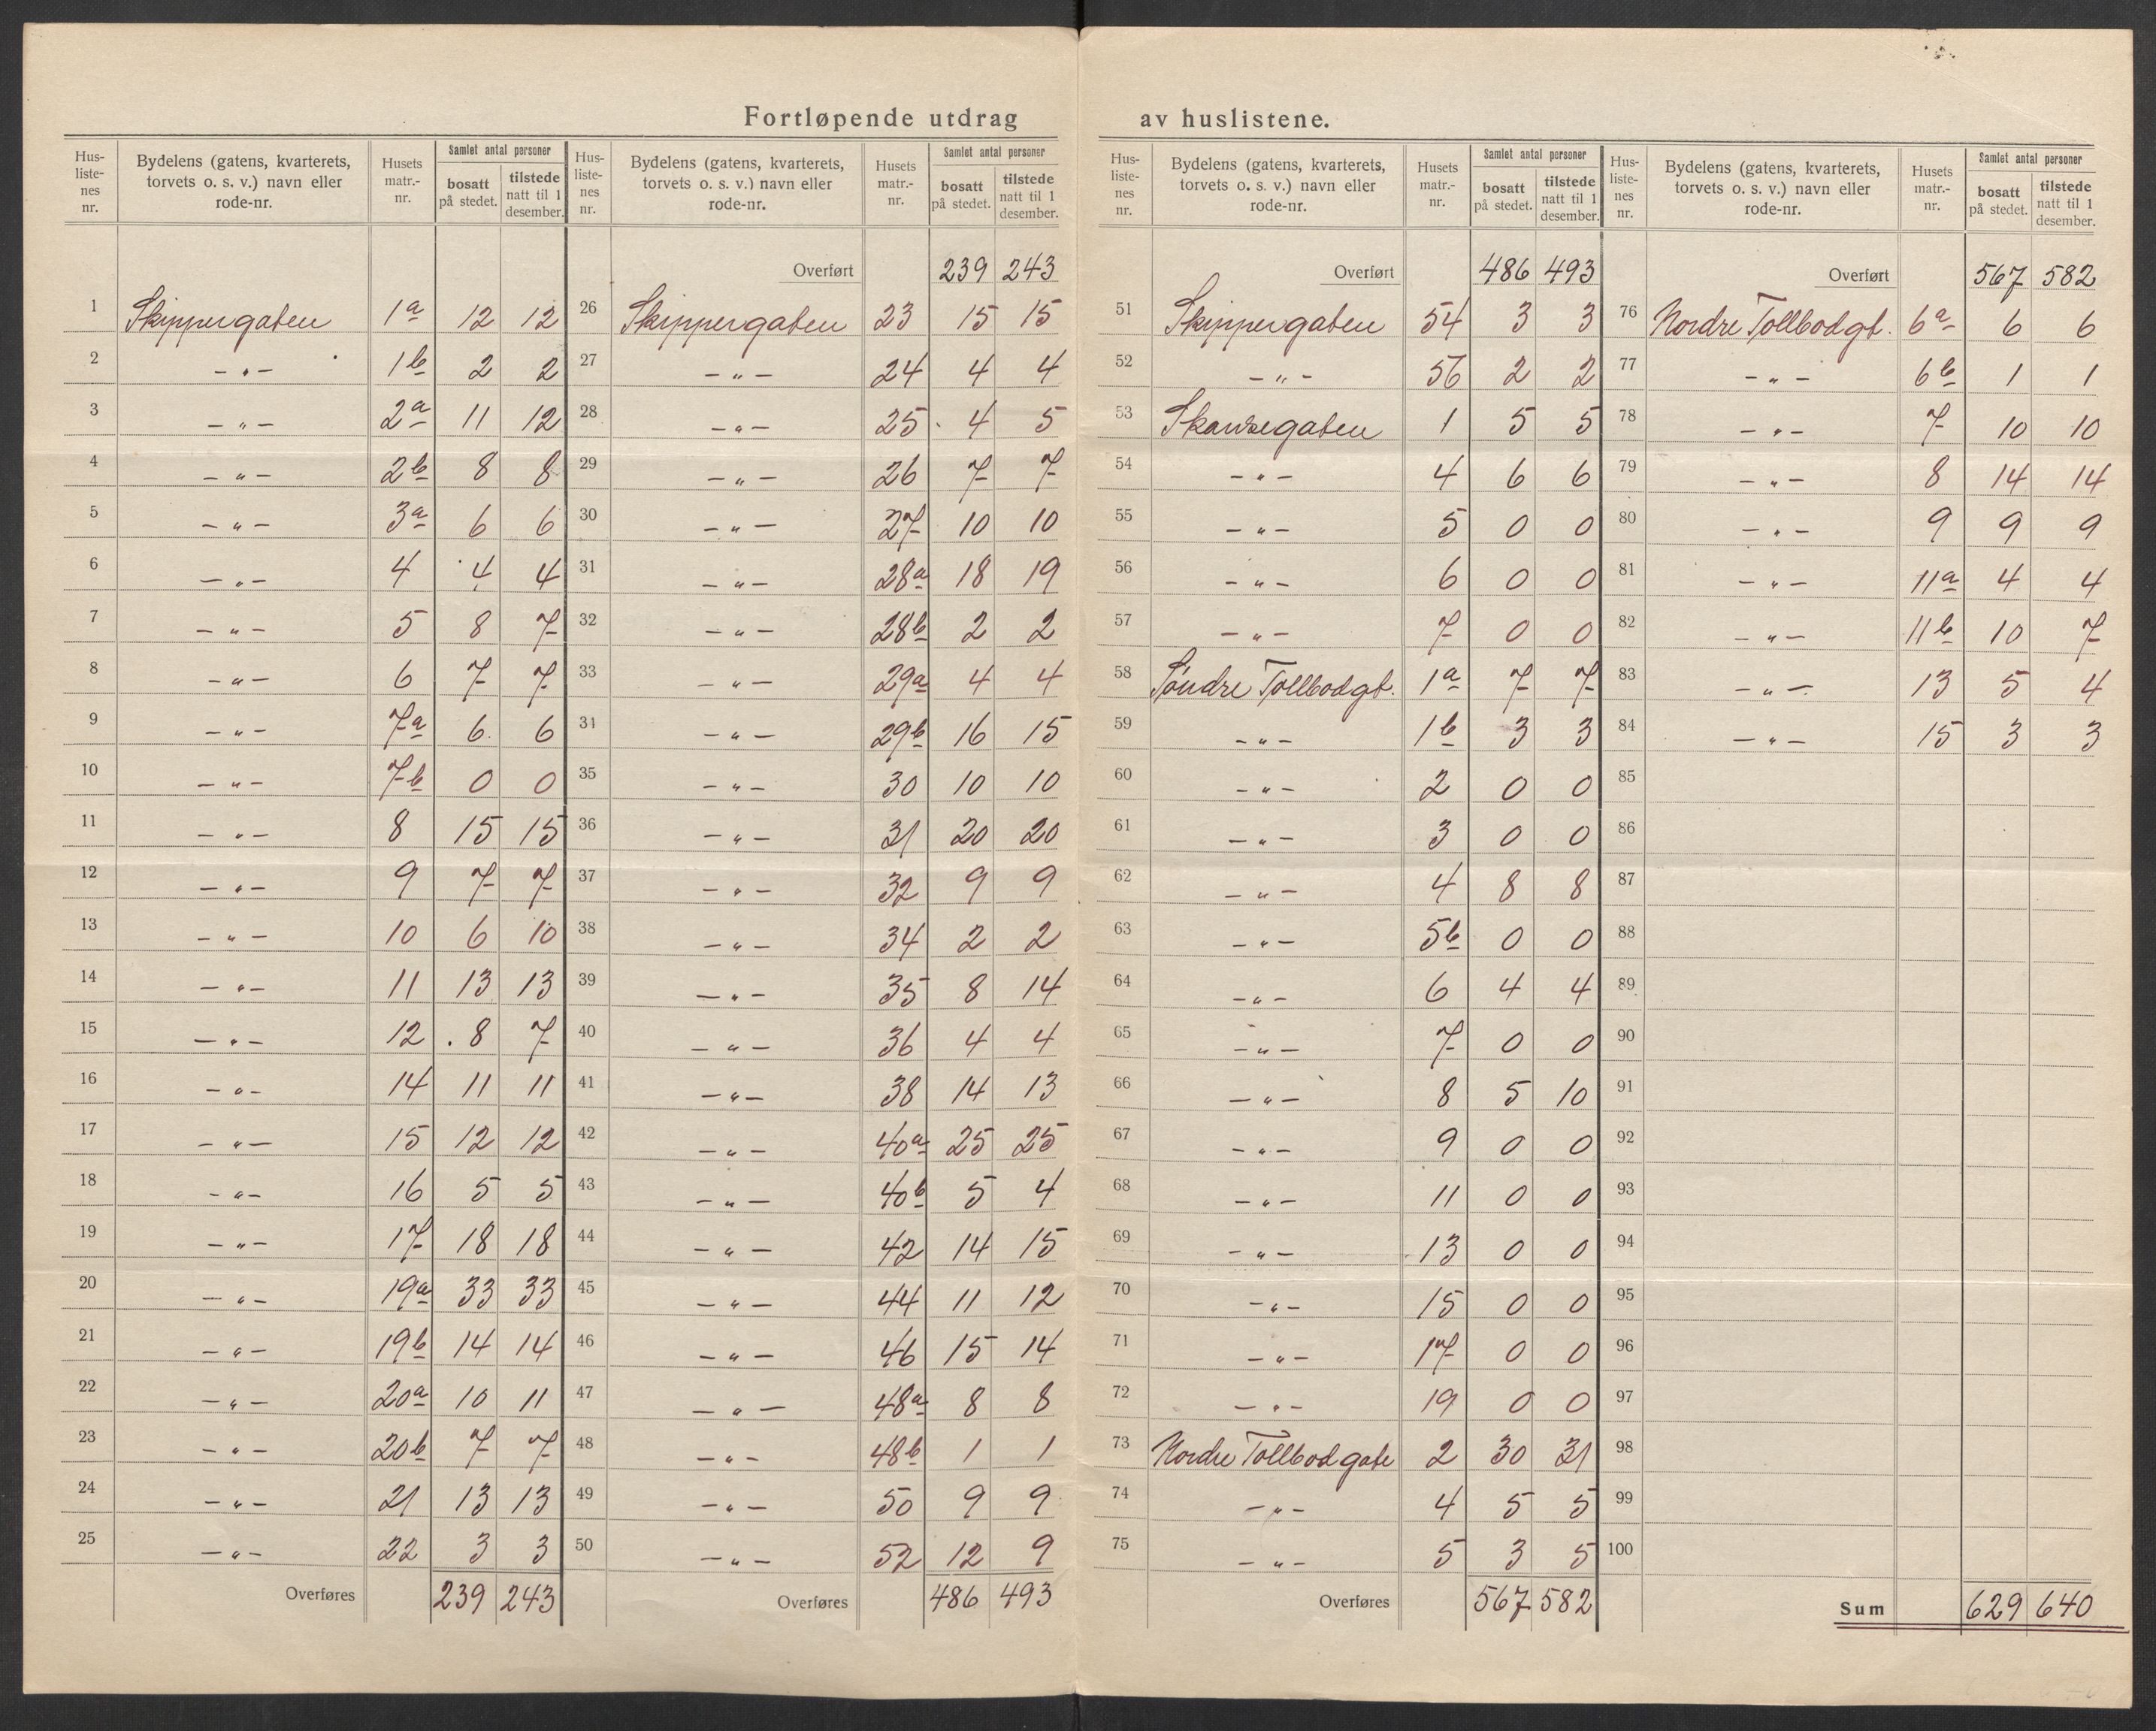 Fortløpende utdrag av huslistene.
Hus-listenes nr. | Bydelens (gatens, kvarterets, torvets o. s. v.) navn eller rode-nr. | Husets matr.-nr. | Samlet antal personer | bosatt på stedet. | tilstede natt til 1 desember.
1 Skippergaten 1a 12 12
2 — „ — 1b 2 2
3 — „ — 2a 11 12
4 — „ — 2b 8 8
5 — „ — 3a 6 6
6 — „ — 4 4 4
7 — „ — 5 8 7
8 — „ — 6 7 7
9 — „ — 7a 6 6
10 — „ — 7b 0 0
11 — „ — 8 15 15
12 — „ — 9 7 7
13 — „ — 10 6 10
14 — „ — 11 13 13
15 — „ — 12 8 7
16 — „ — 14 11 11
17 — „ — 15 12 12
18 — „ — 16 5 5
19 — „ — 17 18 18
20 — „ — 19a 33 33
21 — „ — 19b 14 14
22 — „ — 20a 10 11
23 — „ — 20b 7 7
24 — „ — 21 13 13
25 — „ — 22 3 3
Overføres 239 243
Hus-listenes nr. | Bydelens (gatens, kvarterets, torvets o. s. v.) navn eller rode-nr. | Husets matr.-nr. | Samlet antal personer | bosatt på stedet. | tilstede natt til 1 desember.
Overført 239 243
26 Skippergaten 23 15 15
27 — „ — 24 4 4
28 — „ — 25 4 5
29 — „ — 26 7 7
30 — „ — 27 10 10
31 — „ — 28a 18 19
32 — „ — 28b 2 2
33 — „ — 29a 4 4
34 — „ — 29b 16 15
35 — „ — 30 10 10
36 — „ — 31 20 20
37 — „ — 32 9 9
38 — „ — 34 2 2
39 — „ — 35 8 14
40 — „ — 36 4 4
41 — „ — 38 14 13
42 — „ — 40a 25 25
43 — „ — 40b 5 4
44 — „ — 42 14 15
45 — „ — 44 11 12
46 — „ — 46 15 14
47 — „ — 48a 8 8
48 — „ — 48b 1 1
49 — „ — 50 9 9
50 — „ — 52 12 9
Overføres 486 493
Hus-listenes nr. | Bydelens (gatens, kvarterets, torvets o. s. v.) navn eller rode-nr. | Husets matr.-nr. | Samlet antal personer | bosatt på stedet. | tilstede natt til 1 desember.
Overført 486 493
51 Skippergaten 54 3 3
52 — „ — 56 2 2
53 Skansegaten 1 5 5
54 — „ — 4 6 6
55 — „ — 5 0 0
56 — „ — 6 0 0
57 — „ — 7 0 0
58 Søndre Tollbodgt. 1a 7 7
59 — „ — 1b 3 3
60 — „ — 2 0 0
61 — „ — 3 0 0
62 — „ — 4 8 8
63 — „ — 5b 0 0
64 — „ — 6 4 4
65 — „ — 7 0 0
66 — „ — 8 5 10
67 — „ — 9 0 0
68 — „ — 11 0 0
69 — „ — 13 0 0
70 — „ — 15 0 0
71 — „ — 17 0 0
72 — „ — 19 0 0
73 Nordre Tollbodgate 2 30 31
74 — „ — 4 5 5
75 — „ — 5 3 5
Overføres 567 582
Hus-listenes nr. | Bydelens (gatens, kvarterets, torvets o. s. v.) navn eller rode-nr. | Husets matr.-nr. | Samlet antal personer | bosatt på stedet. | tilstede natt til 1 desember.
Overført 567 582
76 Nordre Tollbodgt. 6a 6 6
77 — „ — 6b 1 1
78 — „ — 7 10 10
79 — „ — 8 14 14
80 — „ — 9 9 9
81 — „ — 11a 4 4
82 — „ — 11b 10 7
83 — „ — 13 5 4
84 — „ — 15 3 3
85
86
87
88
89
90
91
92
93
94
95
96
97
98
99
100
Sum 629 640